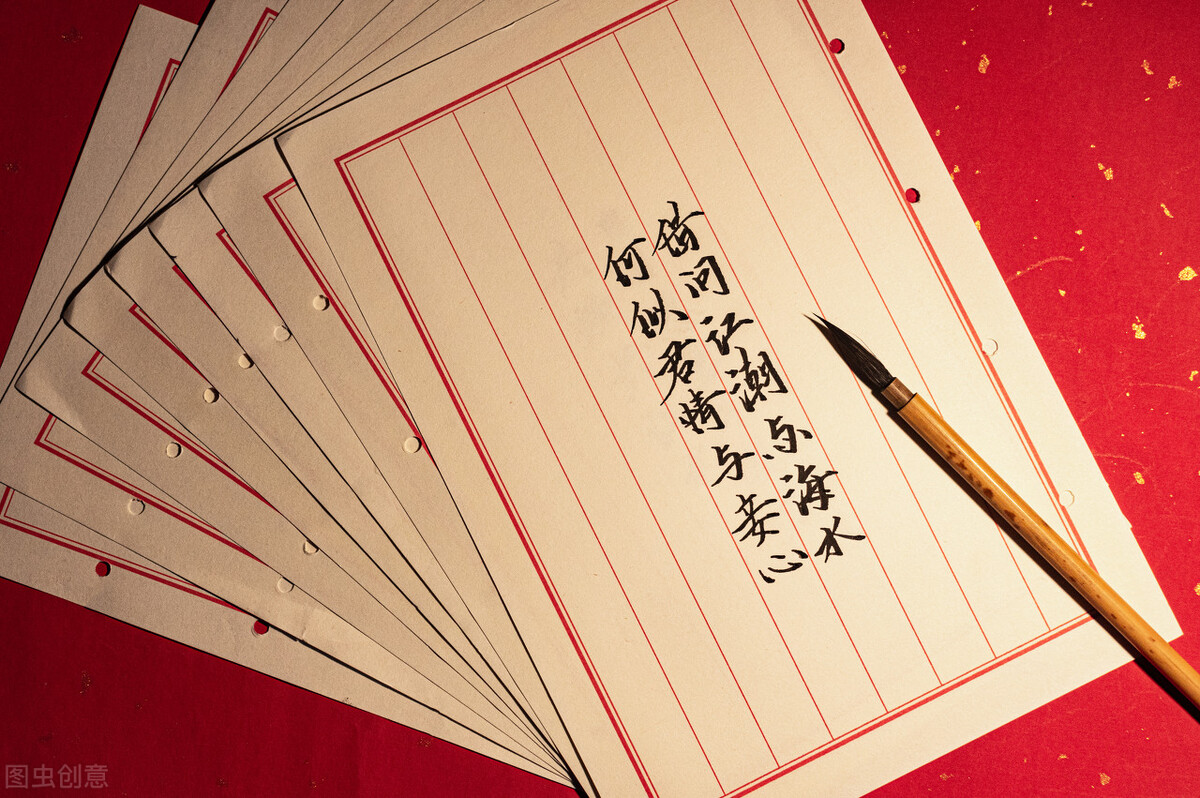 借问江潮与海水
何似君情与妾心
图虫创意